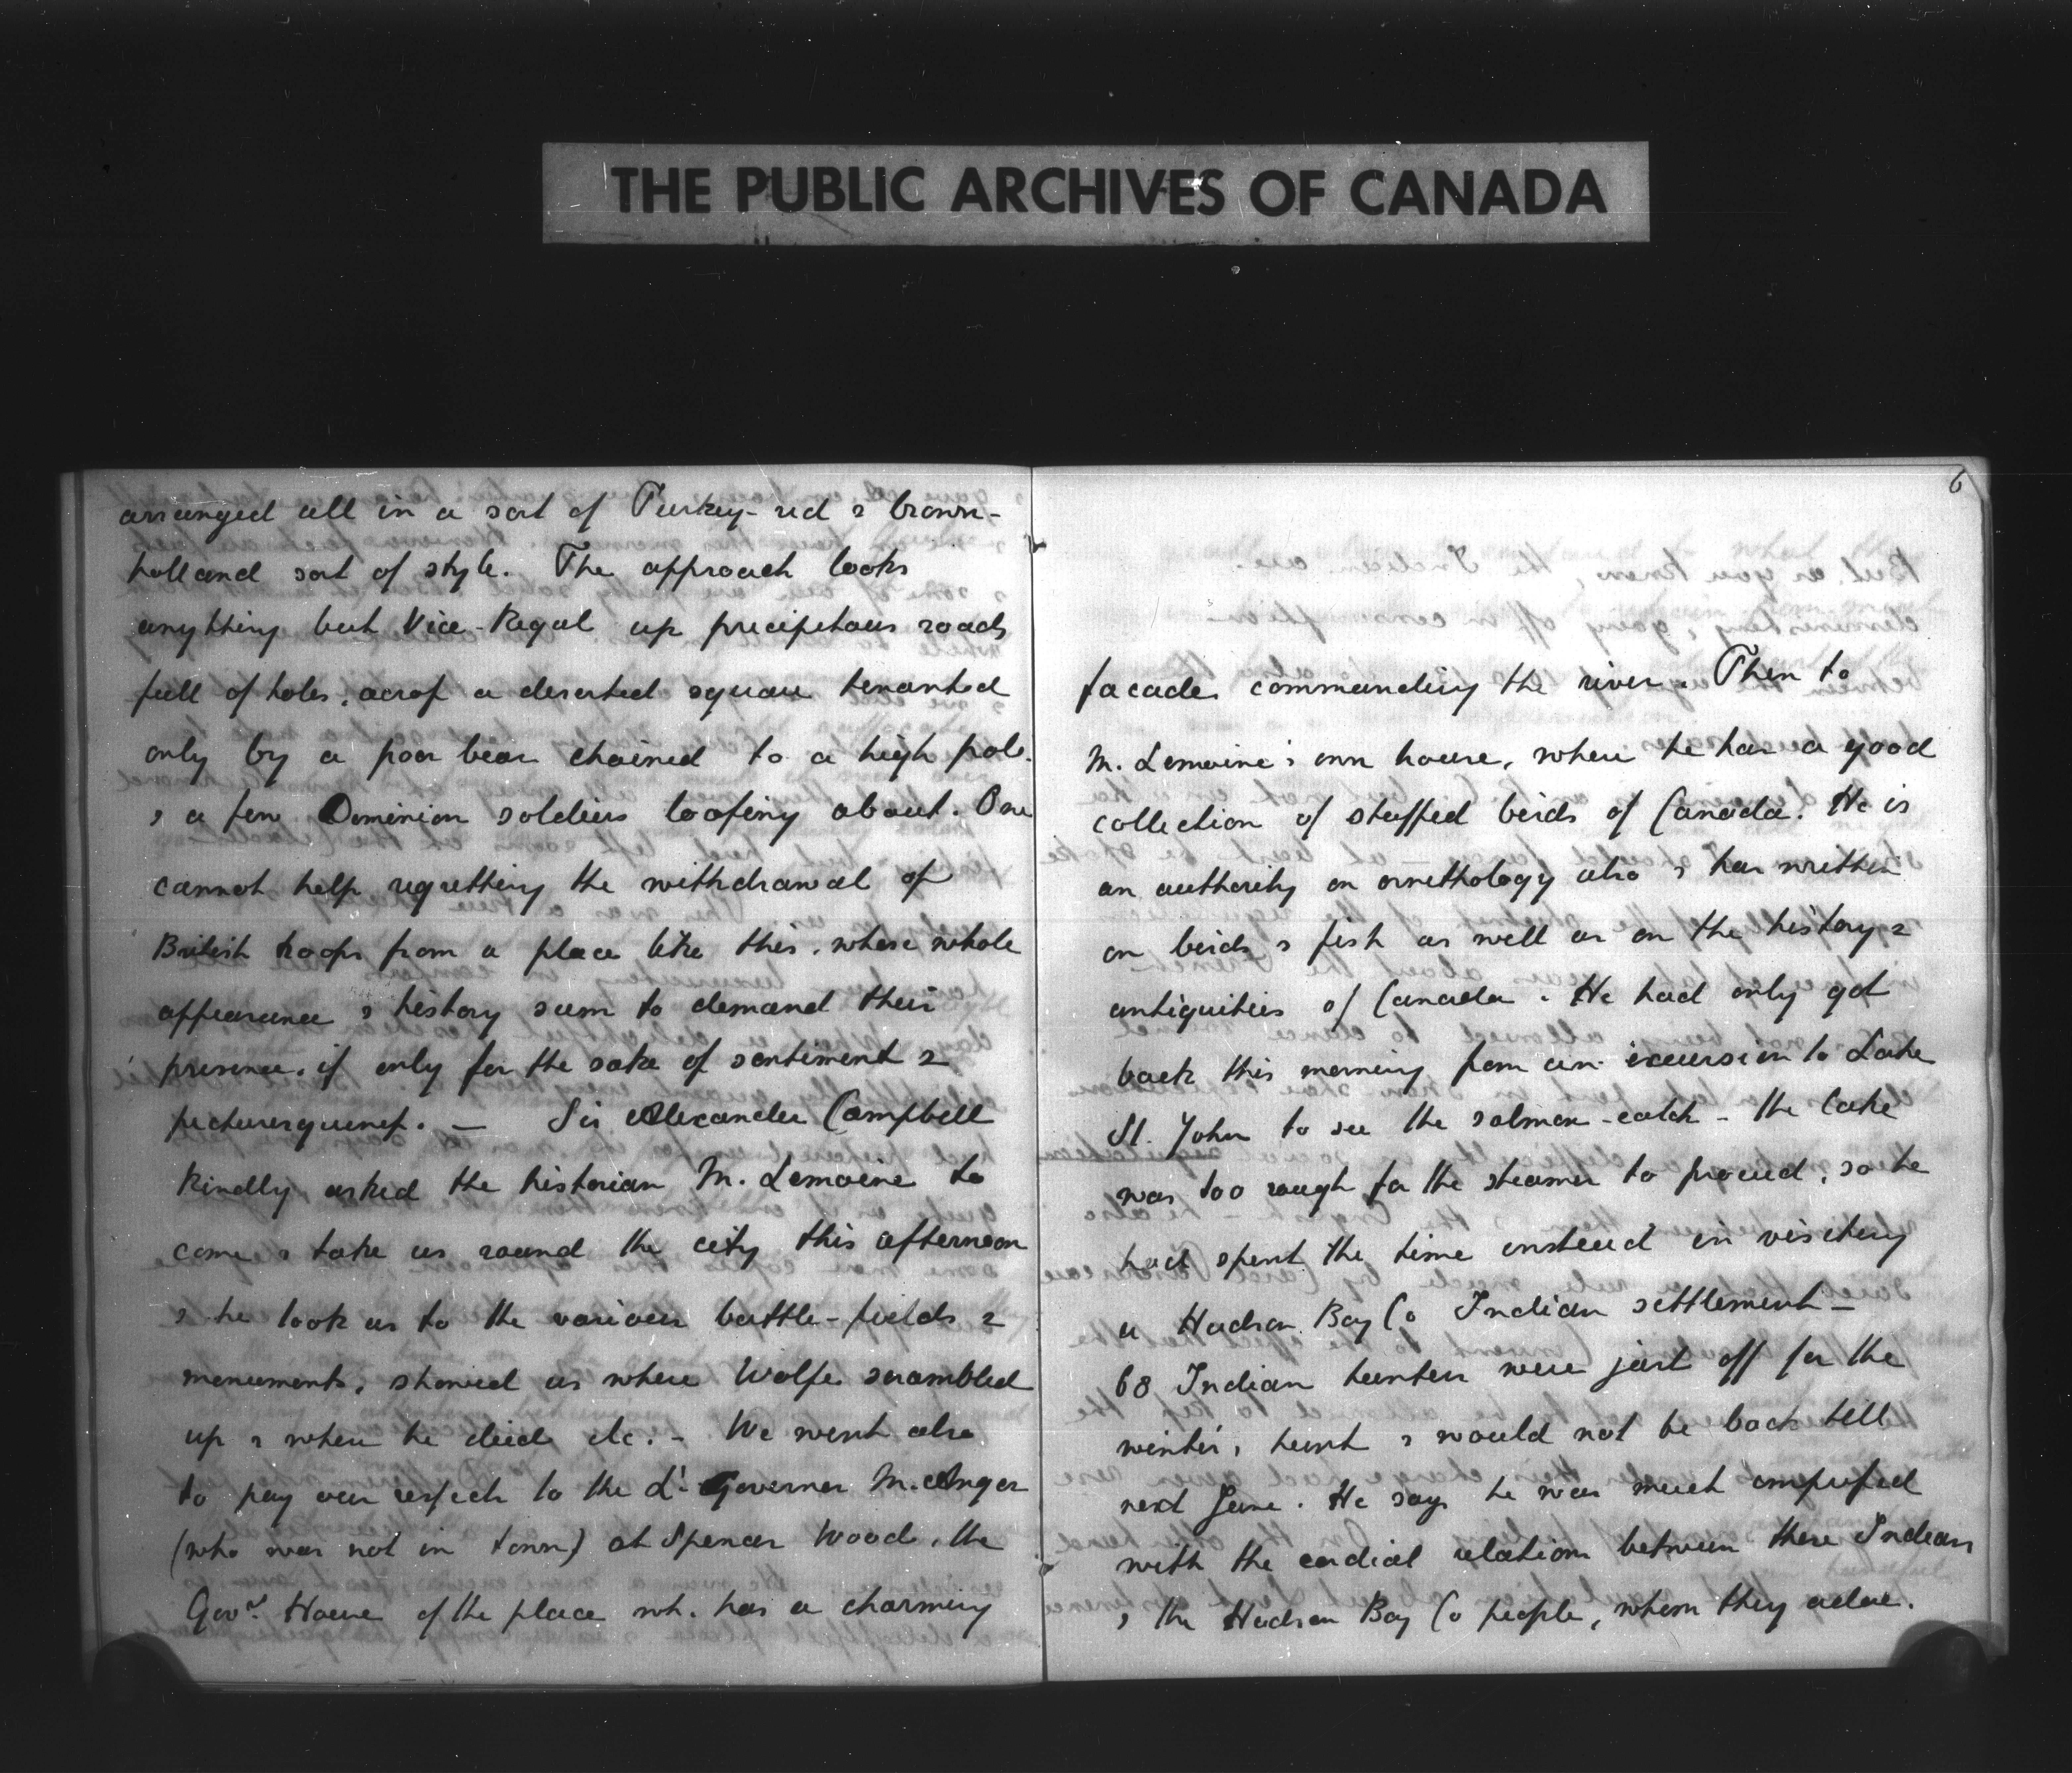 THE PUBLIC ARCHIVES OF CANADA
arranged all in a sort of Turkey-red & brown-
holland sort of style. The approach looks
anything but Vice-Regal up precipitous roads
full of holes, across a deserted square tenanted
only by a poor bear chained to a high pole
& a few Dominion soldiers loafing about. One
cannot help regretting the withdrawal of
British troops from a place like this, whose whole
appearance & history seem to demand their
presence, if only for the sake of sentiment &
picturesqueness. — Sir Alexander Campbell
kindly asked the historian M. Lemoine to
come & take us round the city this afternoon
& he took us to the various battle-fields &
monuments, showed us where Wolfe scrambled
up & where he died etc. - We went also
to pay our respects to the Lt. Governor M. Anger
(who was not in town) at Spencer Wood, the
Govr. House of the place wh. has a charming
6
facade commanding the river. Then to
M. Lemoine's own house, where he has a good
collection of stuffed birds of Canada. He is
an authority on ornithology also & has written
on birds & fish as well as on the history &
antiquities of Canada. He had only got
back this morning from an excursion to Lake
St. John to see the salmon-catch - the lake
was too rough for the steamer to proceed, so he
had spent the time instead in visiting
a Hudson Bay Co Indian settlement —
68 Indian hunters were just off for the
winter's hunt & would not be back till
next June. He says he was much impressed
with the cordial relations between these Indians
& the Hudson Bay Co people, whom they adore.